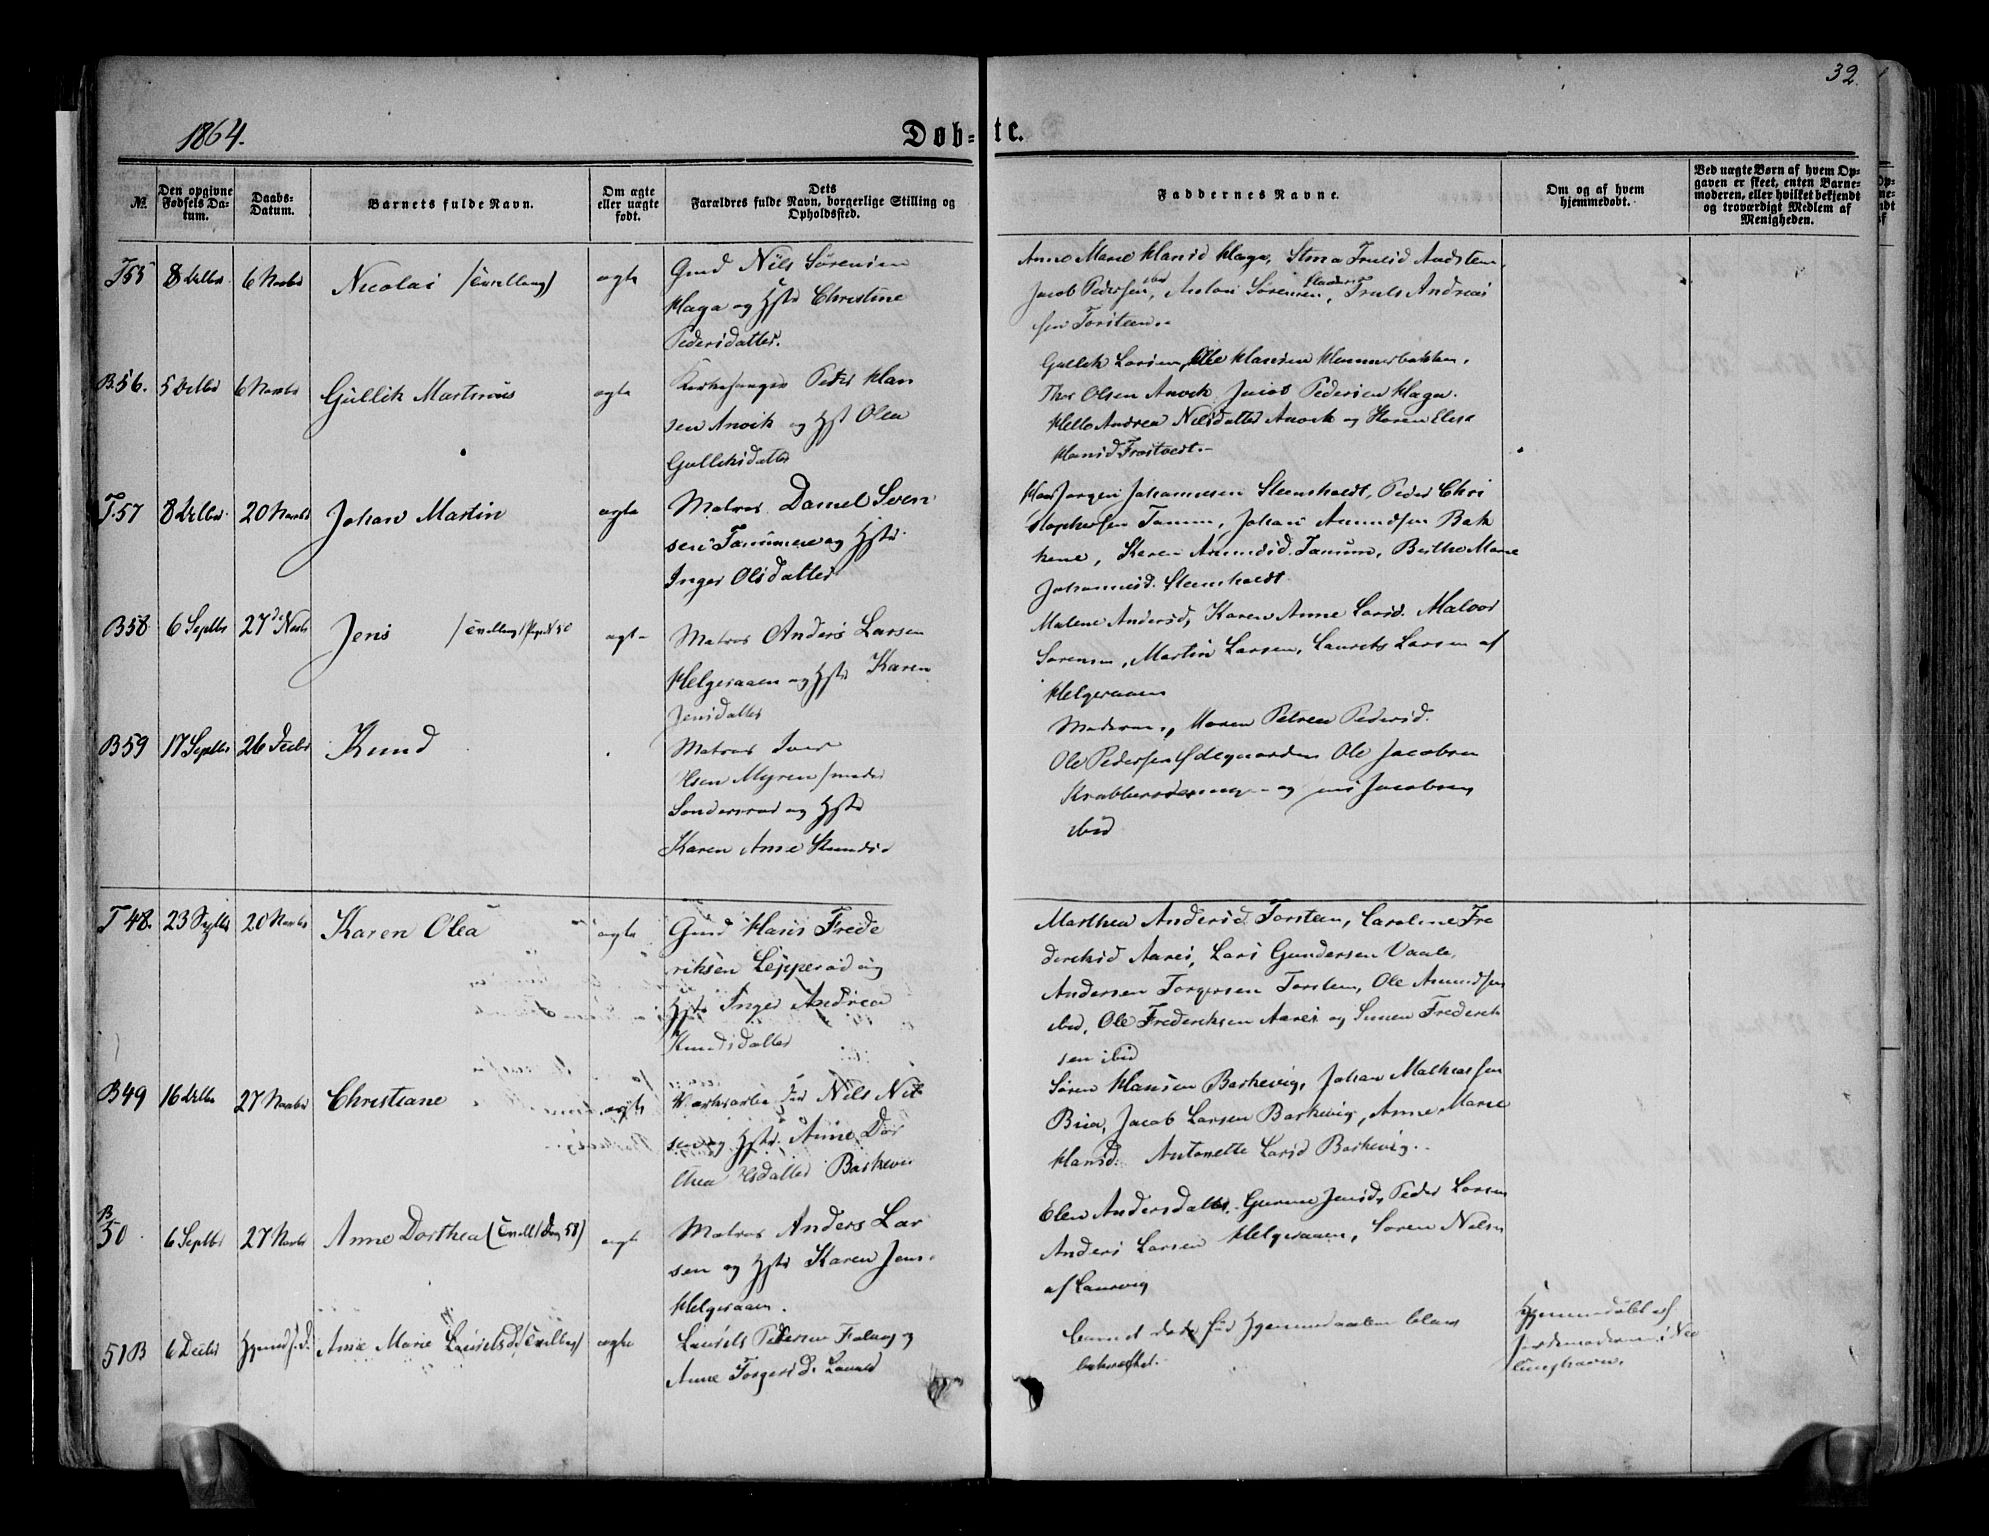 1864.
32.
Døb-te.
№
Den opgivne Fødsels Da-tum.
Daabs-Datum.
Barnets fulde Navn.
Om ægte eller uægte født.
Dets Forældres fulde Navn, borgerlige Stilling og Opholdssted.
Faddernes Navne.
Om og af hvem hjemmedøbt.
Ved uægte Børn af hvem Op-gaven er skeet, enten Barne-moderen, eller hvilket bekjendt og troværdigt Medlem af Menigheden.
T55 8 6 Novbr Nicolai (Tvilling) ægte Gmd Nils Sörensen
Haga og Hstr Christine
Pedersdatter.
Anne Marie Hansd Haga,
Jacob Pedersen ibid, Anton Sörensen, Truls Andrea
sen Torsteen.
B.56. 5 6 Novbr Gullik Martinus ægte Kirkesanger Peder Han
sen Anvik og Hst Olea
Gulliksdatter
Gullik Larsen, Ole Hansen Hammerbakken,
Thor Olsen Anvik Jacob Pedersen Haga.
Helle Andrea Nilsdatter Anvik og Karen Elise
Hansd
T.57 8 20 Novbr Johan Martin ægte Matros Daniel Sven
sen Tanum og Hstr
Inger Olsdatter
Hans Jørgen Johannesen Steensholdt, Peder Chri
stophersen Tanum, Johan Amundsen Bak
kene, Karen Amundsd. Tanum, Berthe Marie
Johannesd. Steensholdt
B58 6 Septbr 27de Novbr Jens (Tvilling) ægte Matros Anders Larsen
Helgeraaen og Hstr Karen
Jensdatter
Malene Andersd, Karen Anne Larsd.
Sørensen, Martin Larsen, Laurits Larsen af
Helgeraaen
B59 17 Septbr 26 Decbr Knud Matros Iver
Olsen Myren
og Hstr
Karen Anne Knudsd
Moderen, Maren Petrea Pedersd.
Ole Pedersen Ødegaarden Ole Jacobsen
og Jacobsen
ibid
T 48. 23 Septbr 20 Novbr Karen Olea ægte Gmd Hans Frede
riksen Lepperöd og
Hstr Inger Andrea
Knudsdatter
Marthea Andersd. Torsteen, Caroline Fre
deriksd Aarei, Lars Gundersen Vaale,
Andersen Torgersen Torsteen, Ole Amundsen
ibid, Ole Frederiksen Aarei og Simen Frederik
sen ibid
B49 16 27 Novbr Christiane ægte Nils Nil
sen og Hstr. Anne Dor
thea Olsdatter Barkevig
Søren Hansen Barkevig, Johan Mathiassen
Jacob Larsen Barkevig, Anne Marie
Hansd. Antonette Larsd Barkevig.
B 50 6 Septbr 27 Novbr Anne Dorthea (Tvill 58) ægte Matros Anders Lar
sen og Hstr Karen Jens.
Helgeraaen.
Elen Andersdatter, Jensd, Peder Larsen
Anders Larsen Helgeraaen, Søren Nilsen
af Laurvig
51B 6 Decbr Anne Marie Lauritsd. (Tvilling) ægte Laurits Pedersen og
Anne Torgersd.
Barnet døde før Hjemmedaaben blev
bekræftet.
Hjemmedøbt af
Jordmoderen i Ne
lunghavn.